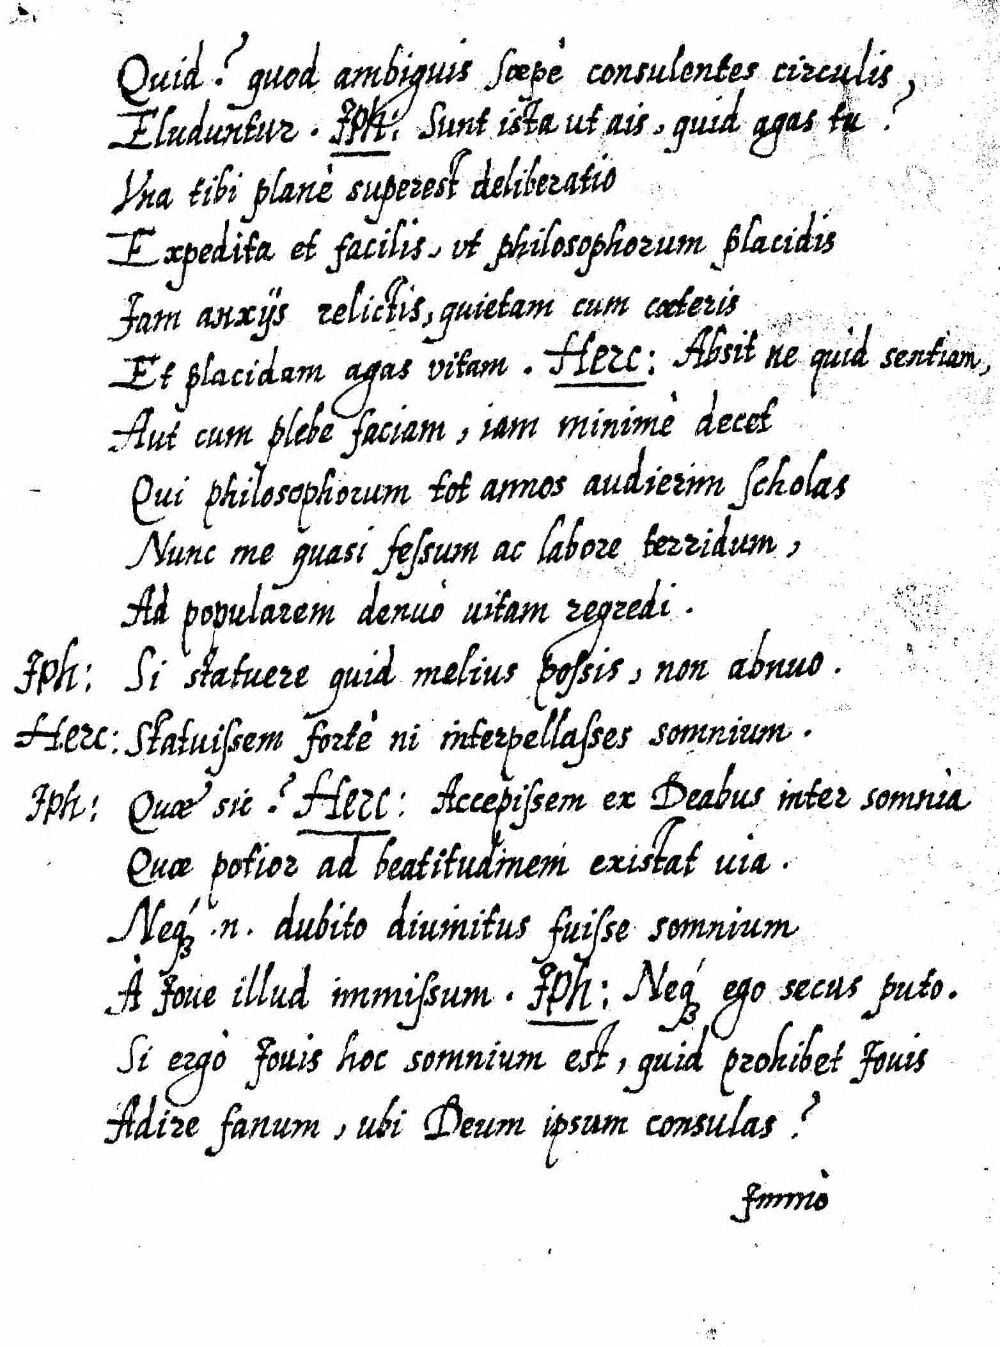 Quid? quod ambiguis sœpè consulentes circulis,
Eluduntur. Iph: Sunt ista ut ais, quid agas tu?
Vna tibi planè superest deliberatio
Expedita et facilis, vt philosophorum placidis
Iam anxijs relictis, quietam cum cœteris
Et placidam agas vitam. Herc: Absit ne quid sentiam,
Aut cum plebe faciam, iam minimè decet
Qui philosophorum tot annos audierim scholas
Nunc me quasi fessum ac labore terridum,
Ad popularem denuò uitam regredi.
Iph: Si statuere quid melius possis, non abnuo.
Herc: Statuissem fortè ni interpellasses somnium.
Iph: Quæ sic? Herc: Accepissem ex Deabus inter somnia
Quæ potior ad beatitudinem existat uia.
Neq́ꝫ .n. dubito diuinitus fuisse somnium
À Ioue illud immissum. Iph: Neq́ꝫ ego secus puto.
Si ergò Iouis hoc somnium est, quid prohibet Iouis
Adire fanum, ubi Deum ipsum consulas?
Immò